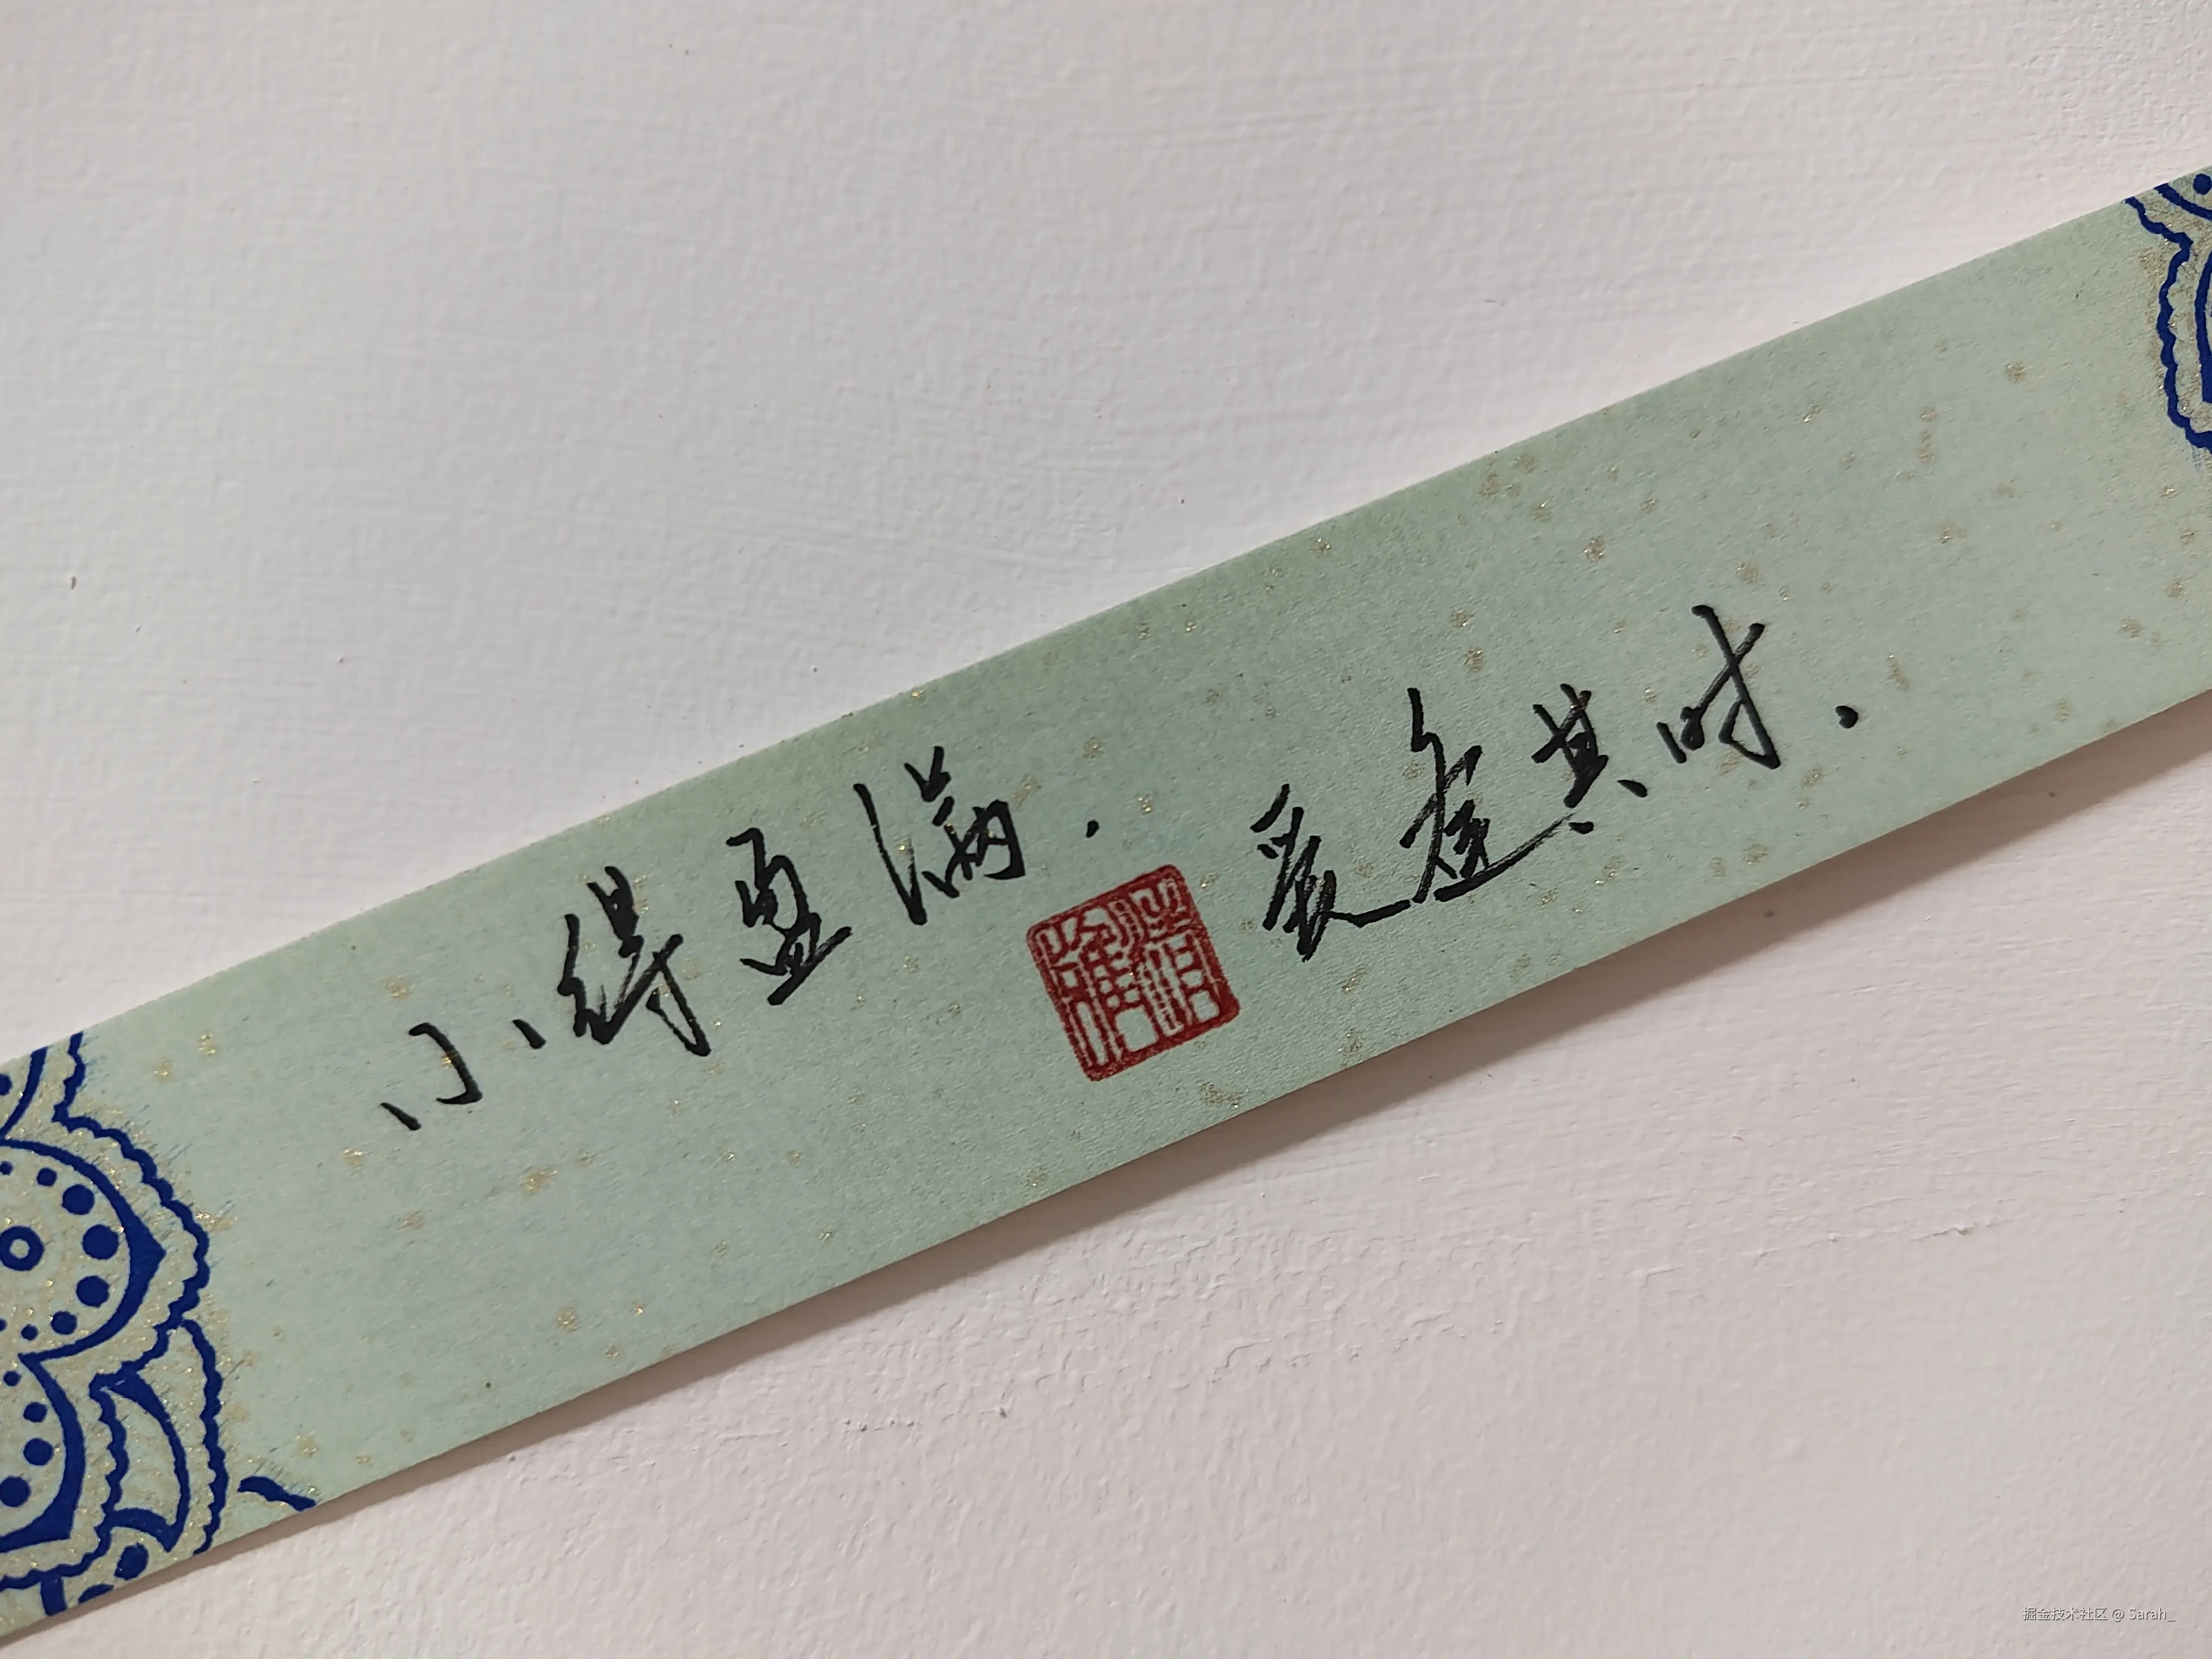 小得盈满.爱逢其时.
掘金技术社区 @ Sarah_